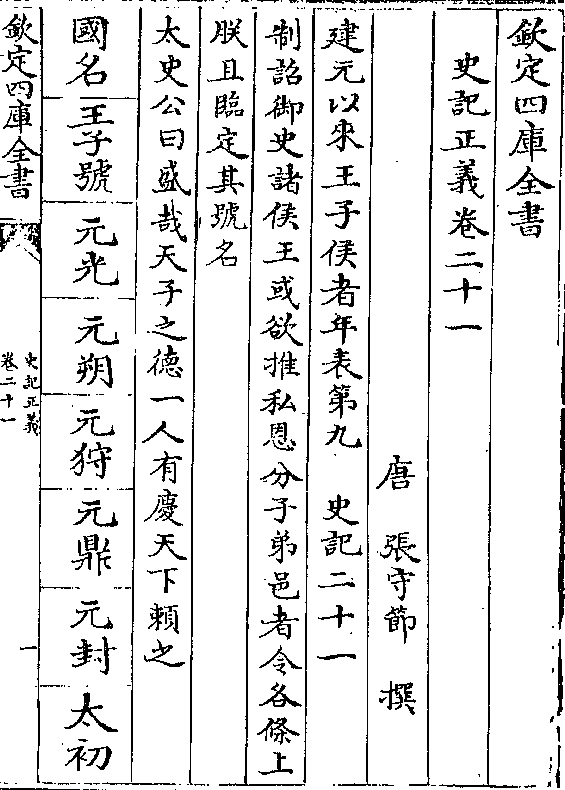 欽定四庫全書
史記正義卷二十一
唐 張守節 撰
建元以來王子侯者年表第九 史記二十一
制詔御史諸侯王或欲推私恩分子弟邑者令各條上
朕且臨定其號名
太史公曰盛哉天子之德一人有慶天下賴之
國名 王子號 元光 元朔 元狩 元鼎 元封 太初
欽定四庫全書
史記正義
卷二十一
一